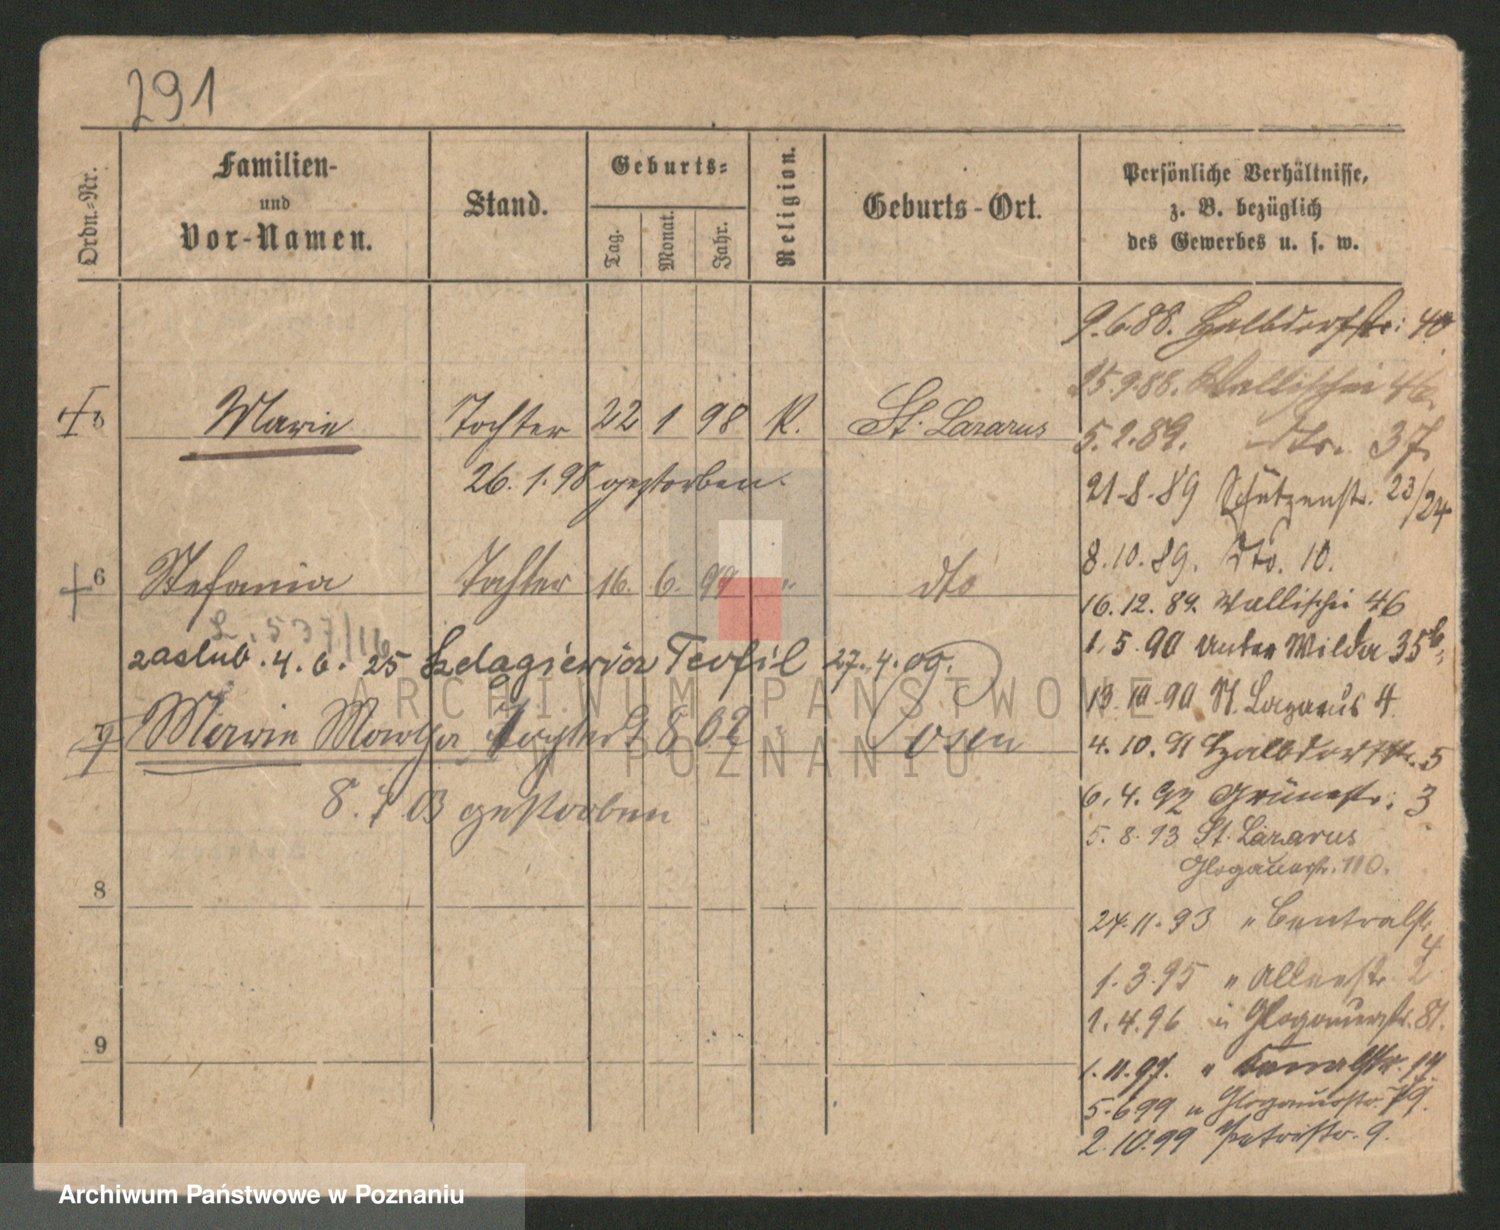 291
Ordn.-Nr.
Familien-
und
Vor-Namen.
Stand.
Geburts-
Tag.
Monat.
Jahr.
Religion.
Geburts-Ort.
Persönliche Verhältnisse,
z. B. bezüglich
des Gewerbes u. s. w.
9.6.88. Halbdorfstr: 40
15.9.88. Wallischei 46.
5 Marie Tochter 22 1 98 K. St. Lazarus
5.2.89. dto. 37.
26.1.98 gestorben.
21.8.89 Schützenstr. 23/24
8.10.89. Dto. 10.
6 Stefania Tochter 16. 6. 99 " dto
16.12.89. Wallischei 46
L. 537/16
1.5.90 Unter Wilda 35b,
zaślub. 4.6.25 Teofil 27.4.00.
13.10.90 St. Lazarus 4.
7 Marie Martha Tochter 9 8 02 " Posen
4.10.91 Halbdorfstr. 5
8.7.03 gestorben
6.4.92 Grünestr. 3
5.8.93 St. Lazarus
Glogauerstr. 110.
8
24.11.93 " Centralstr
4
1.3.95 " Alleestr. 2
1.4.96 " Glogauerstr. 81.
9
1.11.97. " Kanalstr. 14
5.6.99 " Glogauerstr. 79.
2.10.99 Petristr. 9.
ARCHIWUM PAŃSTWOWE
W POZNANIU
Archiwum Państwowe w Poznaniu